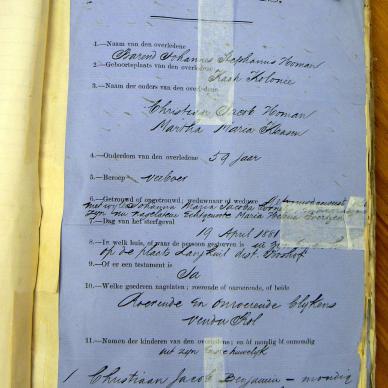 1.—Naam van den overledene
Barend Johannes Stephanus Homan
2.—Geboorteplaats van den overledene
Kaap Kolonie
3.—Naam der ouders van den overledene
Christiaan Jacob Homan
Martha Maria
4.—Ouderdom van den overledene 59 jaar
5.—Beroep veeboer
6.—Getrouwd of ongetrouwd; weduwnaar of weduwe
met wyle Johanna Maria Jacoba
zyn nu nagelaten Echtgenoote Maria
7.—Dag van het sterfgeval
19 April 1881
8.—In welk huis, of waar de persoon gestorven is
op de plaats dist.
9.—Of er een testament is
Ja
10.—Welke goederen nagelaten; roerende of onroerende, of beide
Roerende En onroerende blykens
vendu Rol
11.—Namen der kinderen van den overledene; en of mondig of onmondig
uit zyn huwelyk
1 Christiaan Jacob Benjamin - mondig